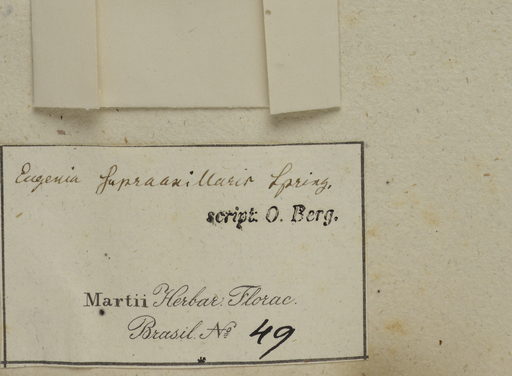 Eugenia supraaxillaris Spring.
script. O. Berg.
Martii Herbar. Florae.
Brasil. No 49